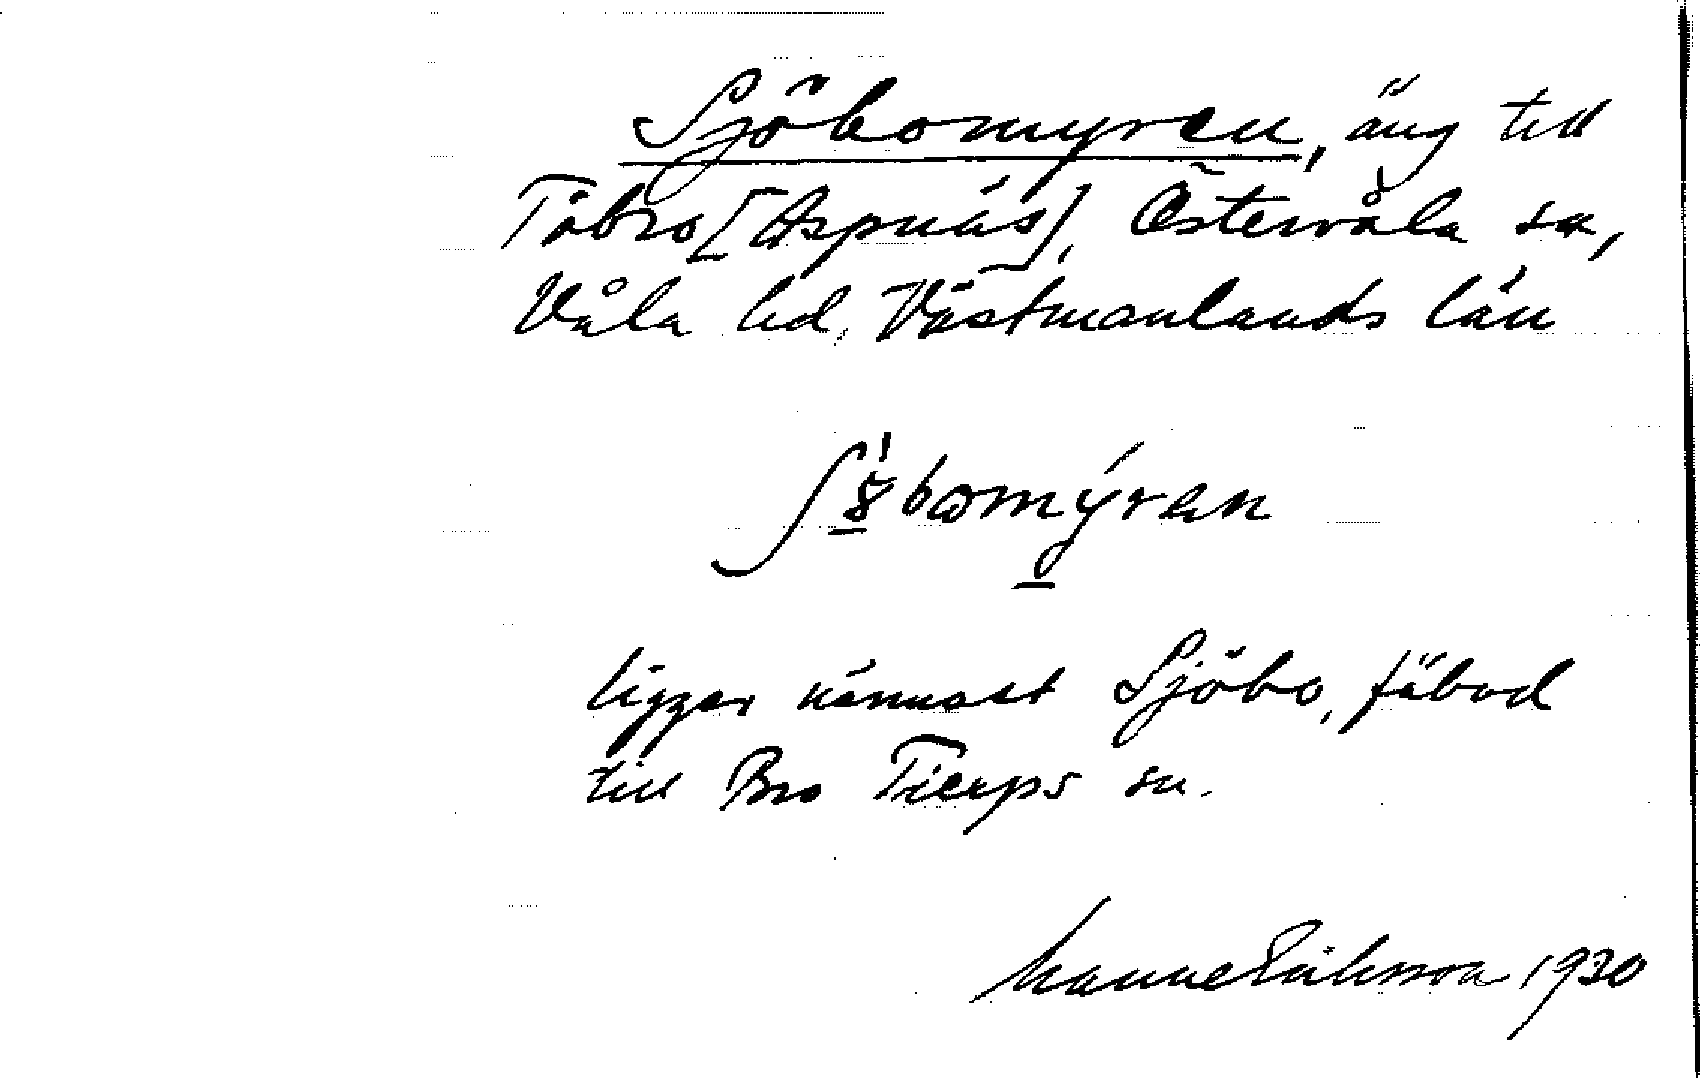 Sjöbomyren, äng till
Täbro [Aspnäs], Östervåla sn,
Våla hd, Västmanlands län
bomýren
ligger närmast Sjöbo, fäbod
till Bro Tierps sn.
Manne Eriksson 1930